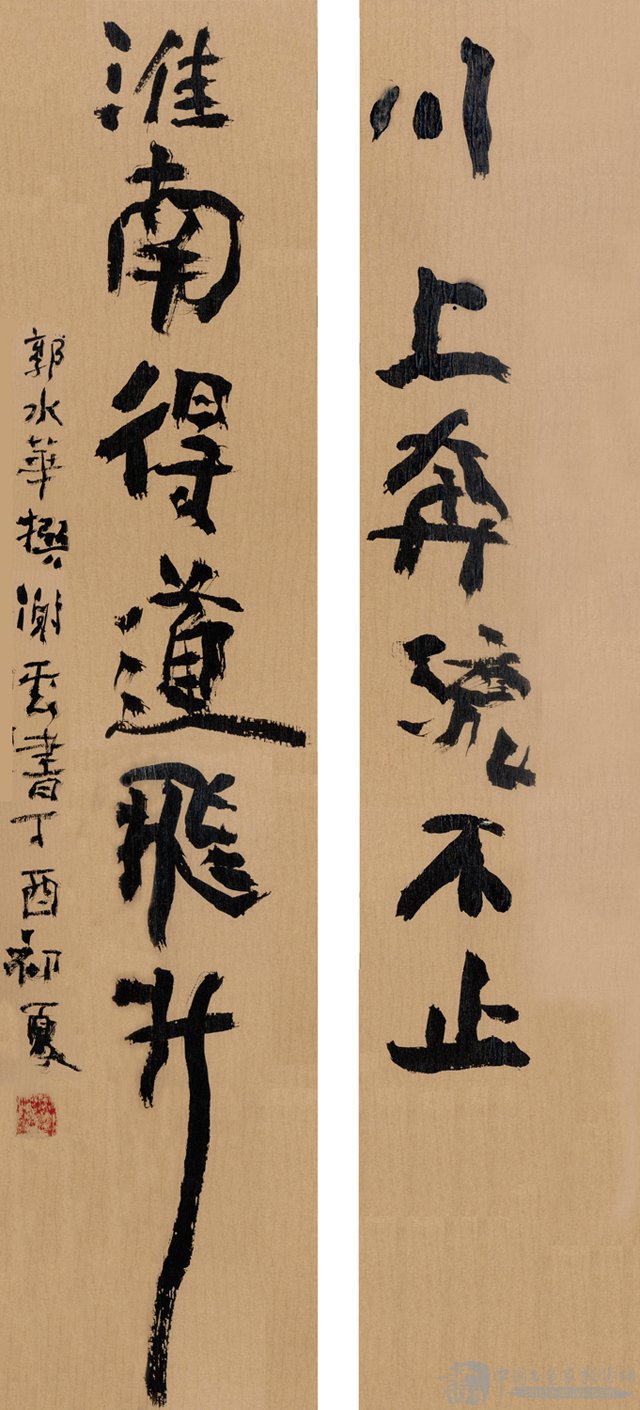 川上奔流不止
淮南得道飛升
郭水華撰謝雲書丁酉初夏